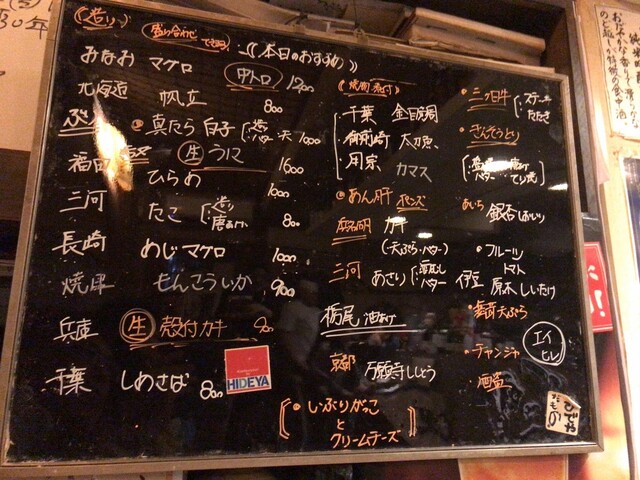 (造り)
盛り合わせできます!
《本日のおすすめ》
みなみ マグロ 中トロ 1200
北海道 帆立 800
真たら 白子 造り バター 天 1000
生 うに 1600
福田 ひらめ 1000
三河 たこ 造り 唐あげ 800
長崎 めじマグロ 1000
焼津 もんごういか 900
兵庫 生 殻付カキ
千葉 しめさば 800
HIDEYA
(焼物・煮付)
千葉 金目鯛
御前崎 太刀魚
用宗 カマス
・あん肝 ポンズ
カキ
(天ぷら・バター)
三河 あさり 酒むし バター
栃尾 油あげ
京都 万願寺ししとう
・いぶりがっこ
と
クリームチーズ
・三ヶ日牛 ステーキ たたき
・きんそうどり
バター てり焼
あいち 銀杏
・フルーツ
トマト
伊豆 原木しいたけ
・舞茸天ぷら
エイヒレ
・チャンジャ
・酒盗
ひでや